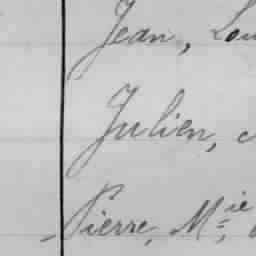 Jean, Lou
Julien,
Pierre, M.ie